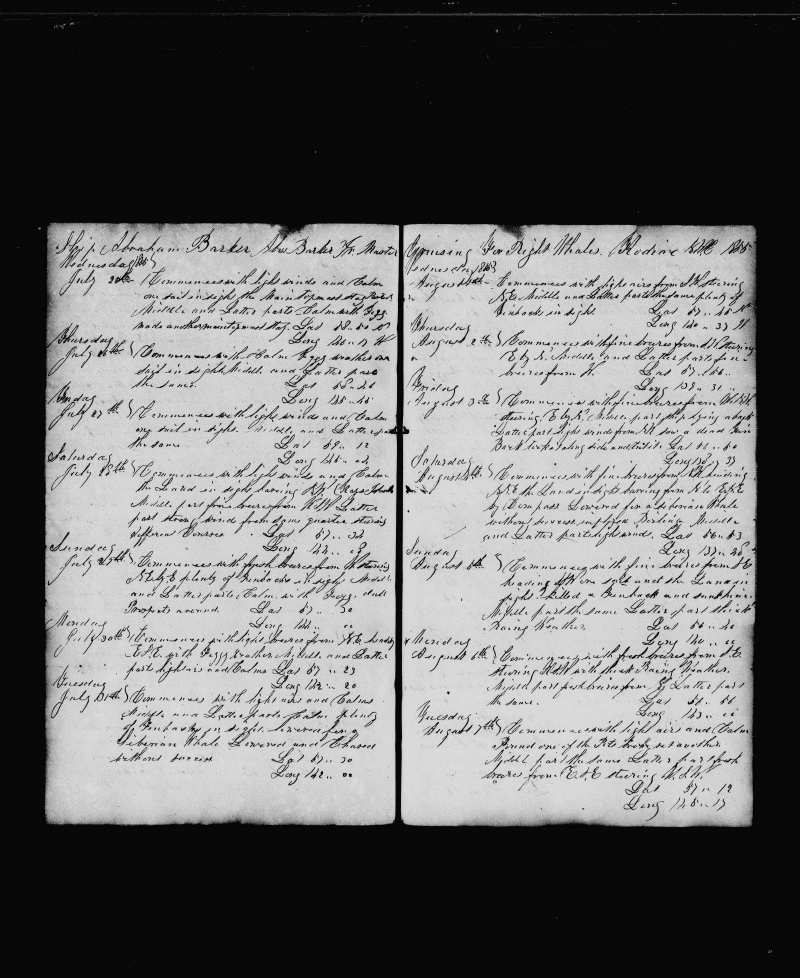 Ship Abraham Barker Abm Barker Jr. Master
Wednesday
July 25th Commences with light winds and Calm
one sail in sight the Main topmast stay
Middle and Latter parts Calm with Fogg
made another maintopmast stay. Lat 58 .. 50 N
Long 140 .. 17 W
Thursday
July 26th Commences with Calm Foggy weather one
sail in sight Middle and Latter part
the same. Lat 58 .. 20
Long 145 .. 45
Friday
July 27th Commences with light winds and Calm
one sail in sight. Middle and Latter part
the same Lat 57 .. 12
Long 145 ..
Saturday
July 28th Commences with light winds and Calm
the Land in sight bearing
Middle part fine breezes from WSW Latter
part strong wind from same quarter steering
different Courses Lat 57 .. 32
Long 142 ..
Sunday
July 29th Commences with fresh breezes from W. steering
N.E. by E plenty of Finbacks in sight Middle
and Latter parts Calm with Fogg. dull
Prospects around. Lat 57 .. 30
Long 142 .. 00
Monday
July 30th Commences with light breezes from N.E. heading
E.S.E. with Foggy weather Middle and Latter
parts light airs and Calms Lat 57 .. 23
Long 142 .. 20
Tuesday
July 31th Commences with light airs and Calms
Middle and Latter parts plenty
of Finbacks in sight. lowered for a
Siberian Whale Lowered and Chased
without success Lat 57 .. 30
Long 142 .. 00
Cruising For Right Whales. Kodiac
Wednesday
August 1th Commences with light aires from S.W. steering
N.E. Middle and Latter parts the same plenty of
Finbacks in sight. Lat 57 .. 45 N
Long 140 .. 37 W
Thursday
August 2th Commences with fine breezes from W steering
E by N. Middle and Latter parts fine
breezes from W. Lat 57 ..
Long 139 .. 31
Friday
August 3th Commences with fine breezes from
steering E by N. Middle part ship lying aback
Latter part light winds from saw a dead Fin
Back took along side and cut it. Lat 56 .. 50
Long 138 .. 33
Saturday
August 4th Commences with fine breezes from heading
N.N.E the Land in sight bearing from N. to E.N.E
by Compass Lowered for a siberian Whale
without success employed Boiling Middle
and Latter parts light winds. Lat 56 .. 53
Long 137 .. 46
Sunday
August 5th Commences with fine breezes from S.E.
heading S.W. one sail and the Land in
sight. Killed a Finback and sunk him
Middle part the same Latter part thick
Rainy Weather. Lat 56 .. 20
Long 140 ..
Monday
August 6th Commences with fresh breezes from S.E.
steering with thick Rainy Weather.
Middle part fresh breezes from E. Latter part
the same. Lat 57 .. 56
Long 143 ..
Tuesday
August 7th Commences with light airs and Calm
found one of the Trys set another
Middle part the same Latter part fresh
breezes from E.S.E steering W.S.W.
Lat 57 .. 12
Long 145 .. 17